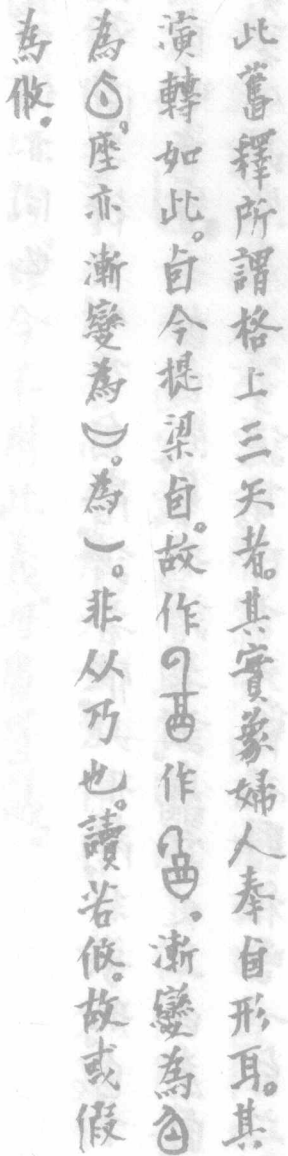 此舊釋所謂格上三矢者。其實象婦人奉卣形耳。其
演轉如此。卣今提梁卣。故作作。漸變為
為。座亦漸變為。為。非从乃也。讀若攸。故或假
為攸。